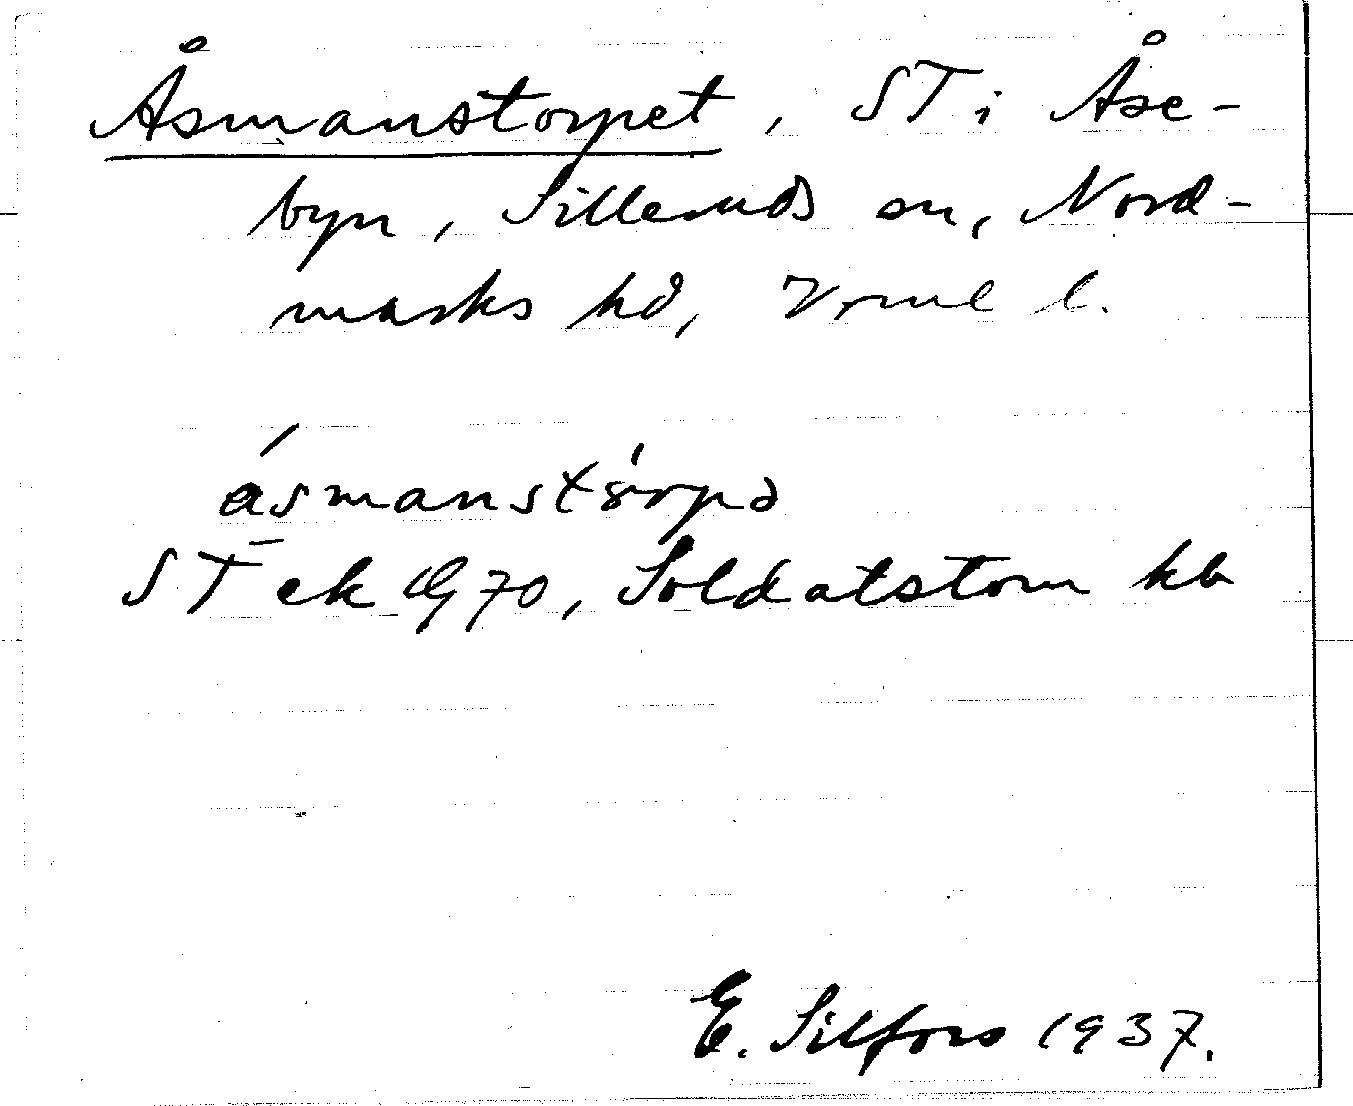 Åsmanstorpet, ST i Åse-
byn, Silleruds sn, Nord-
marks hd, Vrml l.
ásmanstὸrpə
ST ek G 70, Soldatstom kb
E. Silfors 1937.